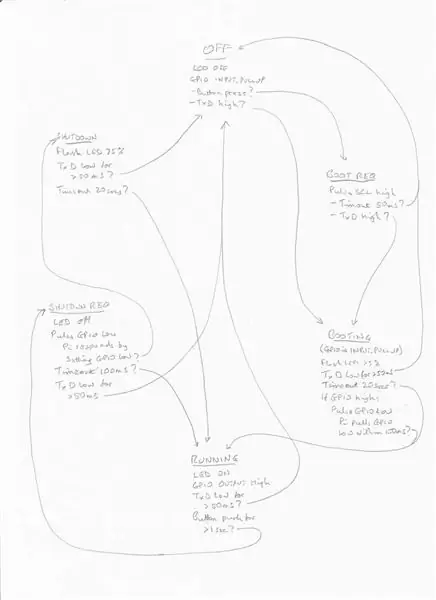 OFF
LED OFF
GPIO INPUT, PULLUP
- Button press?
- TxD high?
SHUTDOWN
Flash LED 75%
TxD Low for
>50ms?
Timeout 20secs?
BOOT REQ
Pulse SCL high
- Timeout 50ms?
- TxD high?
SHUTDOWN REQ
LED OFF
Pulse GPIO Low
Pi responds by
Setting GPIO Low?
Timeout 100ms?
TxD Low for
>50ms
BOOTING
(GPIO is INPUT, PULLUP)
Flash LED 25%
TxD Low for >50ms
Timeout 20sec?
If GPIO high:
Pulse GPIO Low
Pi pulls GPIO
low within
RUNNING
LED ON
GPIO OUTPUT High
TxD Low for
>50ms?
Button push for
>1 sec?